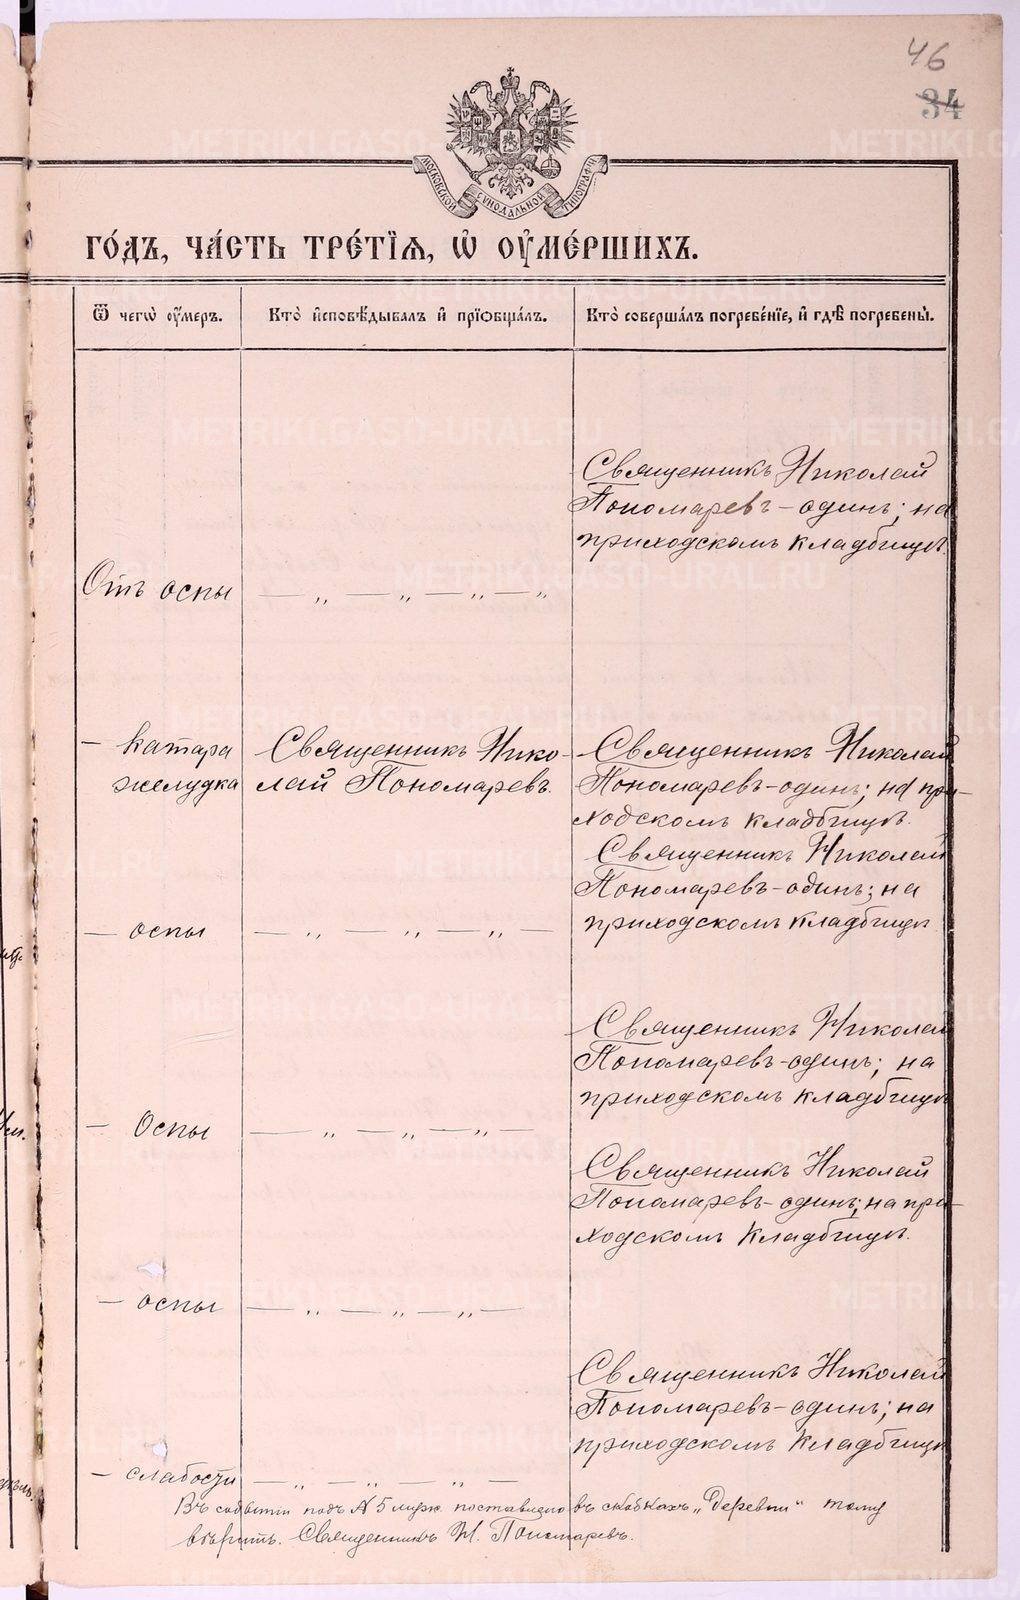 46
34
МОСКОВСКОЙ СѴНОДАЛЬНОЙ ТИПОГРАФІИ
ГО́ДЪ, ЧА́СТЬ ТРЕ́ТІѦ, Ѡ҆ ОУ҆МЕ́РШИХЪ.
Ѿ чегѡ̀ оу҆́меръ.
Кто̀ и҆сповѣ́дывалъ и҆ прїѡбща́лъ.
Кто̀ соверша́лъ погребе́нїе, и҆ гдѣ̀ погребены̀.
Священникъ Николай
Пономаревъ - одинъ; на
приходскомъ кладбищѣ.
Отъ оспы — „ — „ — „ — „
— катара
желудка
Священникъ Нико-
лай Пономаревъ.
Священникъ Николай
Пономаревъ - одинъ; на при-
ходскомъ кладбищѣ.
Священникъ Николай
Пономаревъ - одинъ; на
приходскомъ кладбищѣ
— оспы — „ — „ — „ —
Священникъ Николай
Пономаревъ - одинъ; на
приходскомъ кладбищѣ
— Оспы — „ — „ — „ —
Священникъ Николай
Пономаревъ - одинъ; на при-
ходскомъ кладбищѣ.
— оспы — „ — „ — „ —
Священникъ Николай
Пономаревъ - одинъ; на
приходскомъ кладбищѣ
— слабости — „ — „ „ —
Въ событіи подъ № 5 поставлено въ скобкахъ „Деревни" тому
вѣрить. Священникъ Н. Пономаревъ.
METRIKI.GASO-URAL.RU